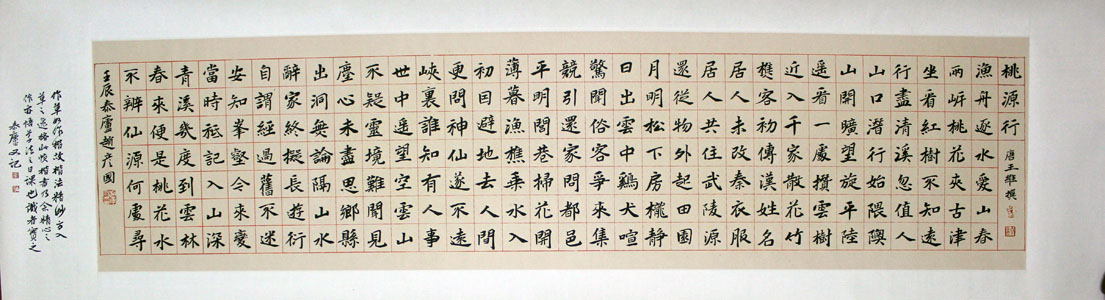 桃源行 唐王維撰
漁舟逐水愛山春
兩岍桃花夾古津
坐看紅樹不知遠
行盡清溪忽值人
山口潛行始隈隩
山開曠望旋平陸
遥看一處攢雲樹
近入千家散花竹
樵客初傳漢姓名
居人未改秦衣服
居人共住武陵源
還從物外起田園
月明松下房櫳靜
日出雲中鷄犬喧
驚聞俗客爭來集
競引還家問都邑
平明閭巷掃花開
薄暮漁樵乘水入
初因避地去人間
更問神仙遂不還
峽裏誰知有人事
世中遥望空雲山
不疑靈境難聞見
塵心未盡思鄉縣
出洞無論隔山水
辭家終擬長遊衍
自謂經過舊不迷
安知峯壑今來變
當時秪記入山深
青溪幾度到雲林
春來便是桃花水
不辨仙源何處尋
壬辰泰廬趙彥國